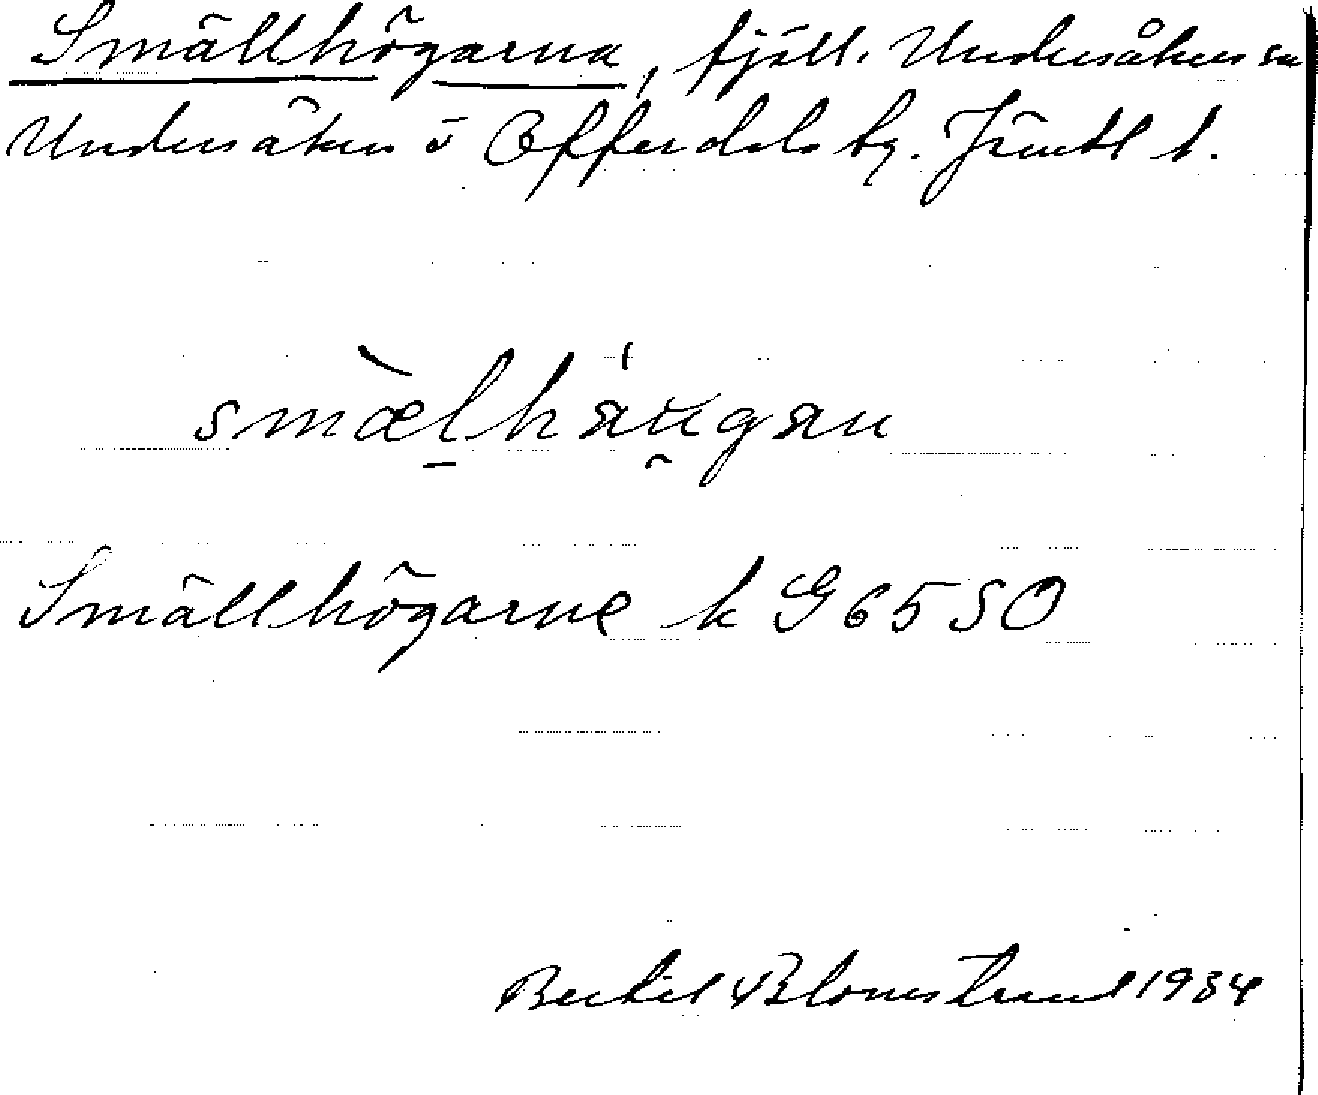 Smällhögarna, fjäll. Undersåkers sn
Undersåkers o Offerdals tg. Jämtl l.
smælhäugan
Smällhögarne k G 65 SO
Bertil Blomstrand 1934